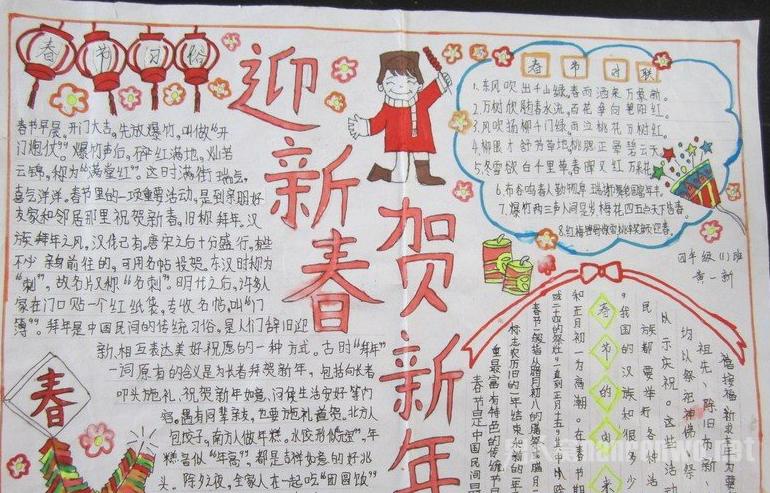 春节习俗
春节早晨，开门大吉，先放爆竹，叫做"开
门炮仗"。爆竹声后，碎红满地，灿若
云锦，称为"满堂红"。这时满街瑞气，
喜气洋洋。春节里的一项重要活动，是到亲朋好
友家和邻居那里祝贺新春，旧称拜年。汉
族拜年之风，汉代已有。唐宋之后十分盛行，有些
不必亲身前往的，可用名帖投贺。东汉时称为
"刺"，故名片又称"名刺"。明代之后，许多人
家在门口贴一个红纸袋，专收名帖，叫"门
簿"。拜年是中国民间的传统习俗，是人们辞旧迎
新、相互表达美好祝愿的一种方式。古时"拜年"
一词原有的含义是为长者拜贺新年，包括向长者
叩头施礼、祝贺新年如意、问候生活安好等内
容。遇有同辈亲友，也要施礼道贺。北方人
包饺子，南方人做年糕。水饺形似"元宝"，年
糕音似"年高"，都是吉祥如意的好兆
头。除夕夜，全家人在一起吃"团圆饭"
春
迎新春
贺新年
春节对联
1.东风吹出千山绿，春雨洒来万象新。
2.万树欣随春水流，百花争向艳阳红。
3.风吹杨柳千门绿，雨泣桃花万树红。
4.柳眼才舒芳草
5.冬雪欲白千里草，春暖又红万朵花
6.布谷鸣春人勤物阜
7.爆竹两三声人间是岁，梅花四五点天下皆春。
四年级(1)班
黄一新
春节的由来
福接福、祈求丰年为
祖先、除旧布新、
均以祭祀神佛、祭
以示庆祝。这些活动
民族都要举行各种活
"我国的汉族和很多少
和正月初一为高潮。在春节期
或二十四的祭灶，一直到正月十五
春节一般指从腊月初八的腊祭，腊月
标志农历旧的一年结束
重最富有特色的传统节日
春节是中国民间